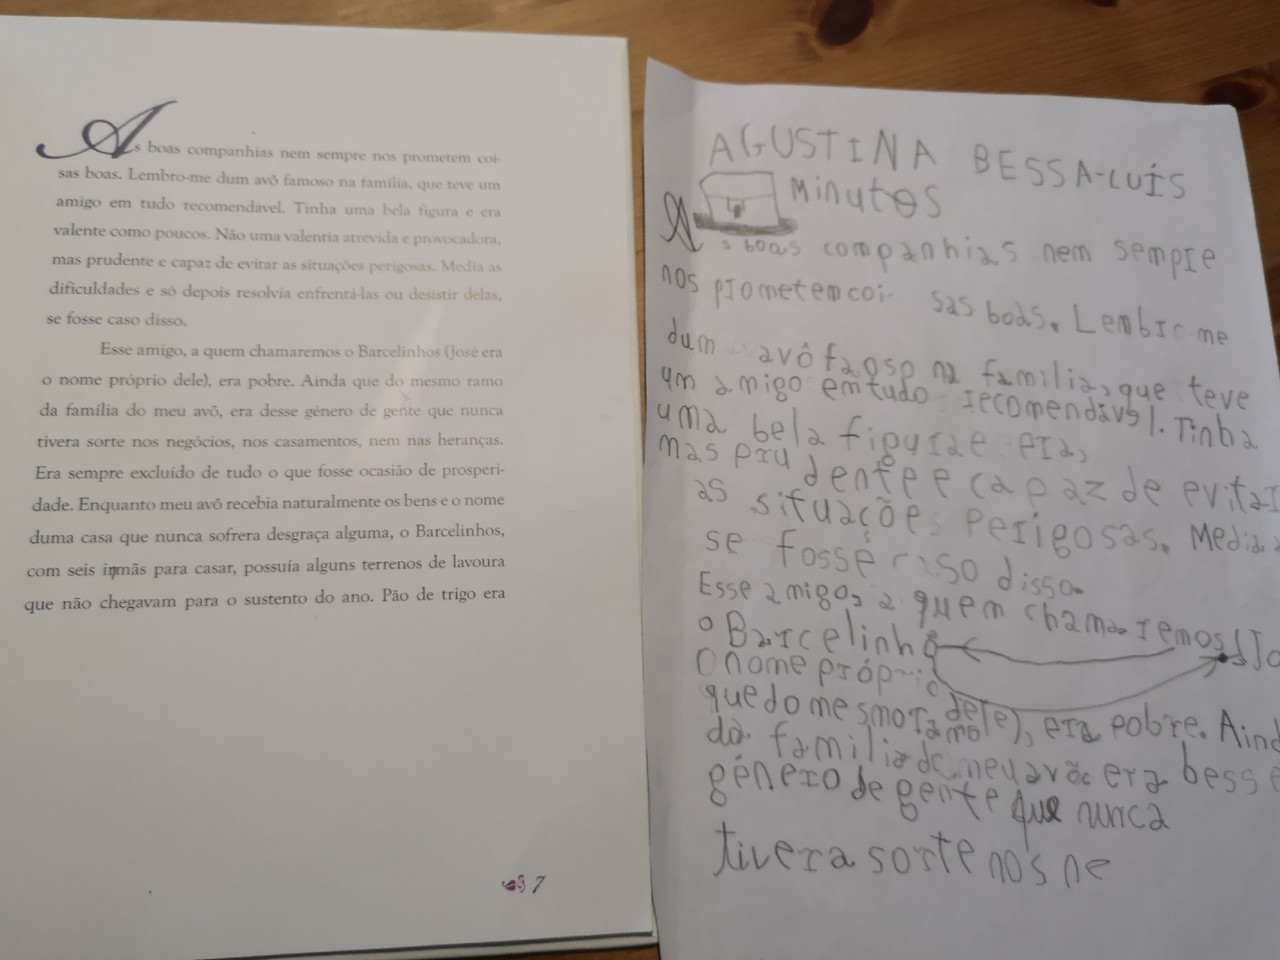 As boas companhias nem sempre nos prometem coi-
sas boas. Lembro-me dum avô famoso na família, que teve um
amigo em tudo recomendável. Tinha uma bela figura e era
valente como poucos. Não uma valentia atrevida e provocadora,
mas prudente e capaz de evitar as situações perigosas. Media as
dificuldades e só depois resolvia enfrentá-las ou desistir delas,
se fosse caso disso.
Esse amigo, a quem chamaremos o Barcelinhos (José era
o nome próprio dele), era pobre. Ainda que do mesmo ramo
da família do meu avô, era desse género de gente que nunca
tivera sorte nos negócios, nos casamentos, nem nas heranças.
Era sempre excluído de tudo o que fosse ocasião de prosperi-
dade. Enquanto meu avô recebia naturalmente os bens e o nome
duma casa que nunca sofrera desgraça alguma, o Barcelinhos,
com seis irmãs para casar, possuía alguns terrenos de lavoura
que não chegavam para o sustento do ano. Pão de trigo era
7
AGUSTINA BESSA-LUÍS
Minutos
As boas companhias nem sempre
nos prometem coi- sas boas. Lembro me
dum avô faoso na familia, que teve
um amigo em tudo recomendável. Tinha
uma bela figura e era,
mas prudente e capaz de evitar
as situações perigosas. Media a
se fosse caso disso.
Esse amigo, a quem chamaremos (Jo
o Barcelinho
O nome próprio dele), era pobre. Aind
que do mesmo ramo
da familia do meu avô era besse
género de gente que nunca
tivera sorte nos ne